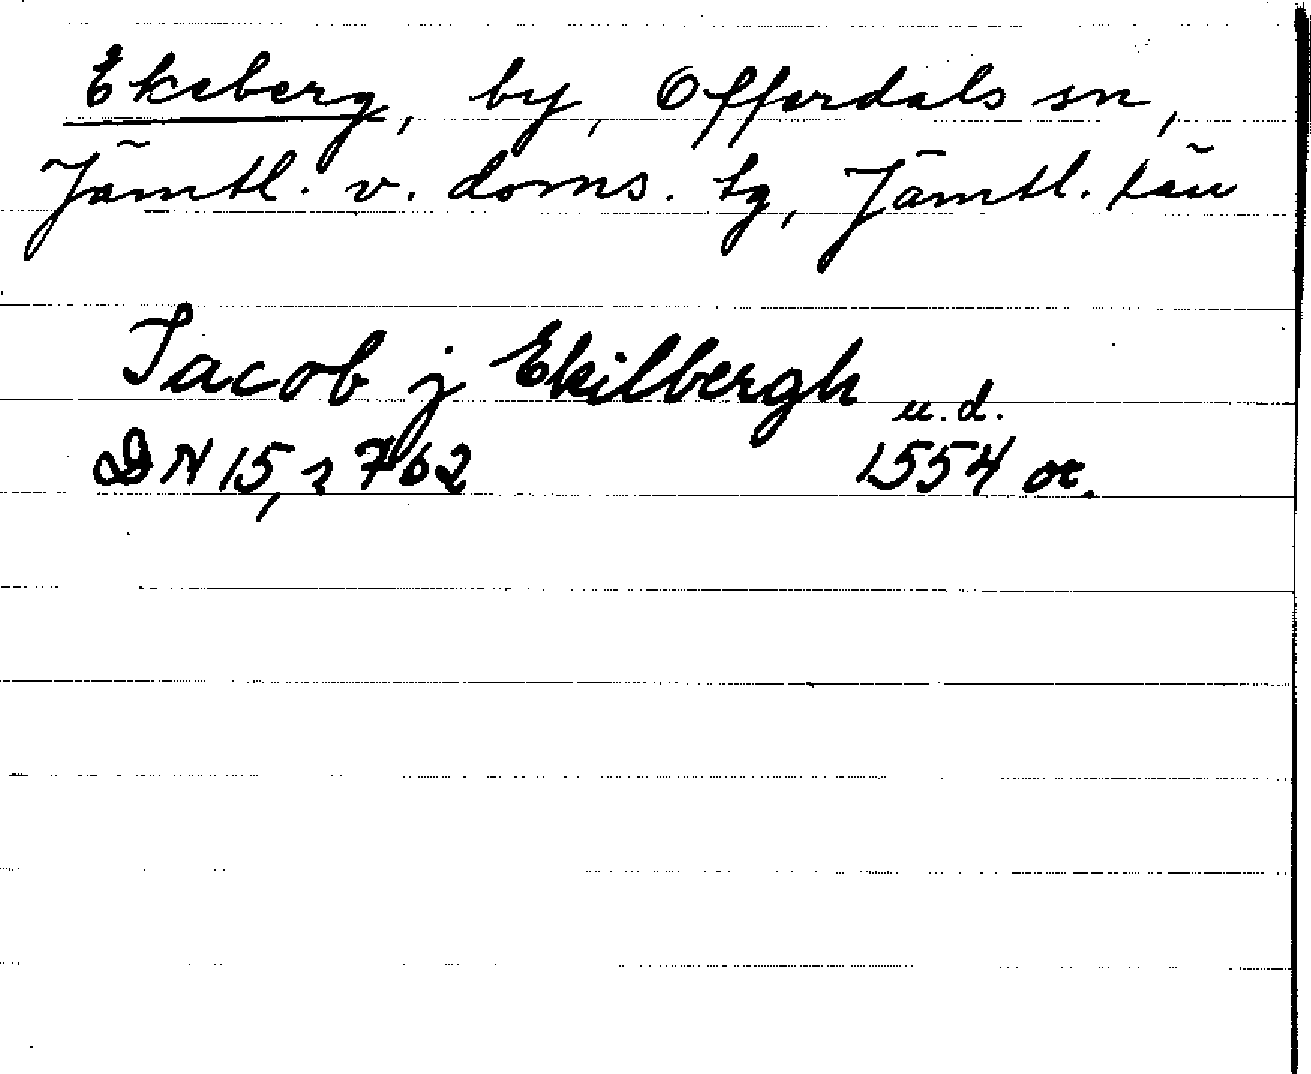 Ekeberg, by, Offerdals sn,
Jämtl. v. doms. tg, Jämtl. län
Jacob j Ekilbergh
u.d.
DN 15, s 762 1554 or.